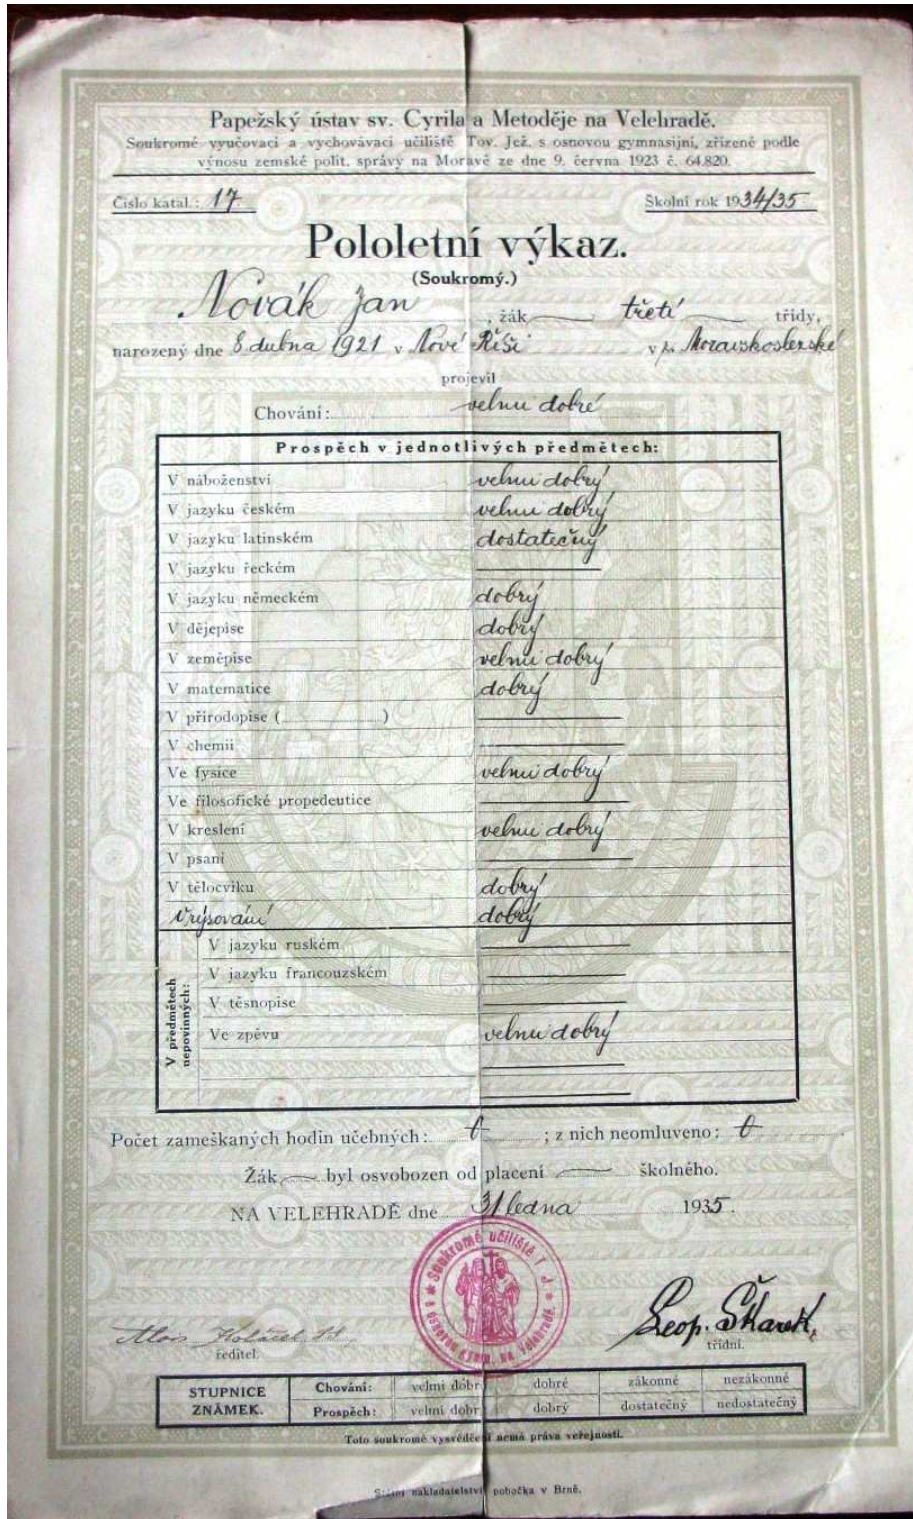 Papežský ústav sv. Cyrila a Metoděje na Velehradě.
Soukromé vyučovací a vychovávací učiliště Tov. Jež. s osnovou gymnasijní, zřízené podle
výnosu zemské polit. správy na Moravě ze dne 9. června 1923 č. 64.820.
Číslo katal.: 17. Školní rok 1934/35
Pololetní výkaz.
(Soukromý.)
Novák Jan, žák třetí třídy,
narozený dne 8. dubna 1921 v Nové Říši v Moravskoslezské
projevil
Chování: velmi dobré
Prospěch v jednotlivých předmětech:
V náboženství velmi dobrý
V jazyku českém velmi dobrý
V jazyku latinském dostatečný
V jazyku řeckém
V jazyku německém dobrý
V dějepise dobrý
V zeměpise velmi dobrý
V matematice dobrý
V přírodopise ( )
V chemii
Ve fysice velmi dobrý
Ve filosofické propedeutice
V kreslení velmi dobrý
V psaní
V tělocviku dobrý
V rýsování dobrý
V předmětech nepovinných:
V jazyku ruském
V jazyku francouzském
V těsnopise
Ve zpěvu velmi dobrý
Počet zameškaných hodin učebných: 0 ; z nich neomluveno: 0
Žák byl osvobozen od placení školného.
NA VELEHRADĚ dne 31. ledna 1935.
Soukromé učiliště T. J. s osnovou gymn. na Velehradě
Alois Koláček Leop. Škarek,
ředitel. třídní.
STUPNICE ZNÁMEK.
Chování: velmi dobré dobré zákonné nezákonné
Prospěch: velmi dobrý dobrý dostatečný nedostatečný
Toto soukromé vysvědčení nemá práva veřejnosti.
Státní nakladatelství pobočka v Brně.